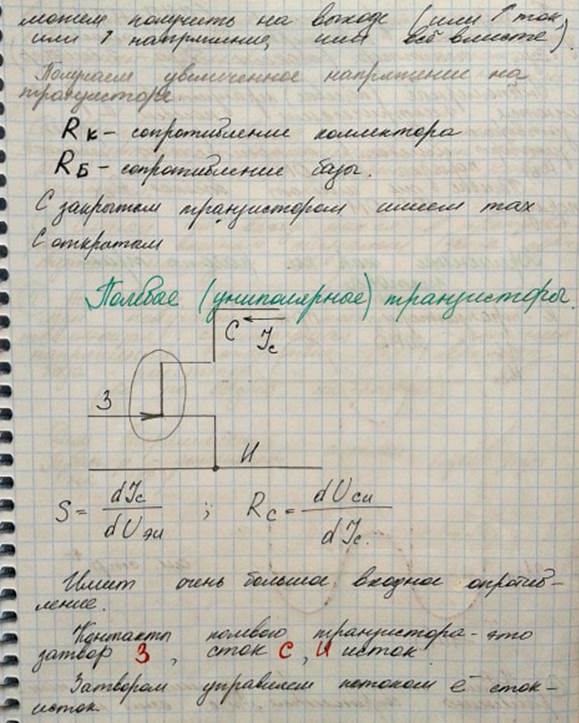 можем получить на выходе (или ↑ ток,
или ↑ напряжение, или всё вместе).
Получаем увеличенное напряжение на
транзисторе
Rк – сопротивление коллектора
RБ – сопротивление базы.
С закрытом транзистором имеем max
С открытом
Полевые (униполярные) транзисторы.
С Ic
З
И
S = dIc / dUзи ; Rc = dUси / dIc.
Имит очень большое входное опротив-
ление.
Контакты полевого транзистора - это
затвор З, сток С, И исток
Затвором управляем потоком ē сток-
исток.